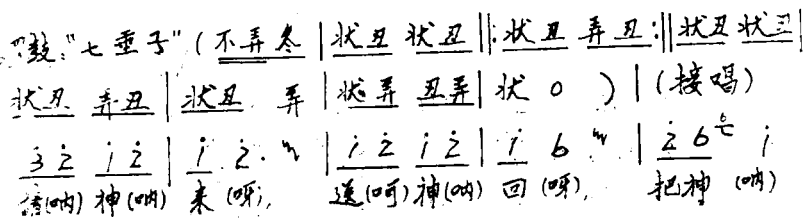 鼓"七垂子"(不弄冬|状丑 状丑‖:状丑 弄丑:‖状丑 状丑|
状丑 弄丑|状丑 弄|状弄 丑弄|状 0 )|(接唱)
3̇ 2̇ 1̇ 2̇|1̇ 2̇.|1̇ 2̇ 1̇ 2̇|1̇ 6|2̇ 6 1̇
请(呐)神(呐)来(呀), 送(呵)神(呐)回(呀), 把神(呐)